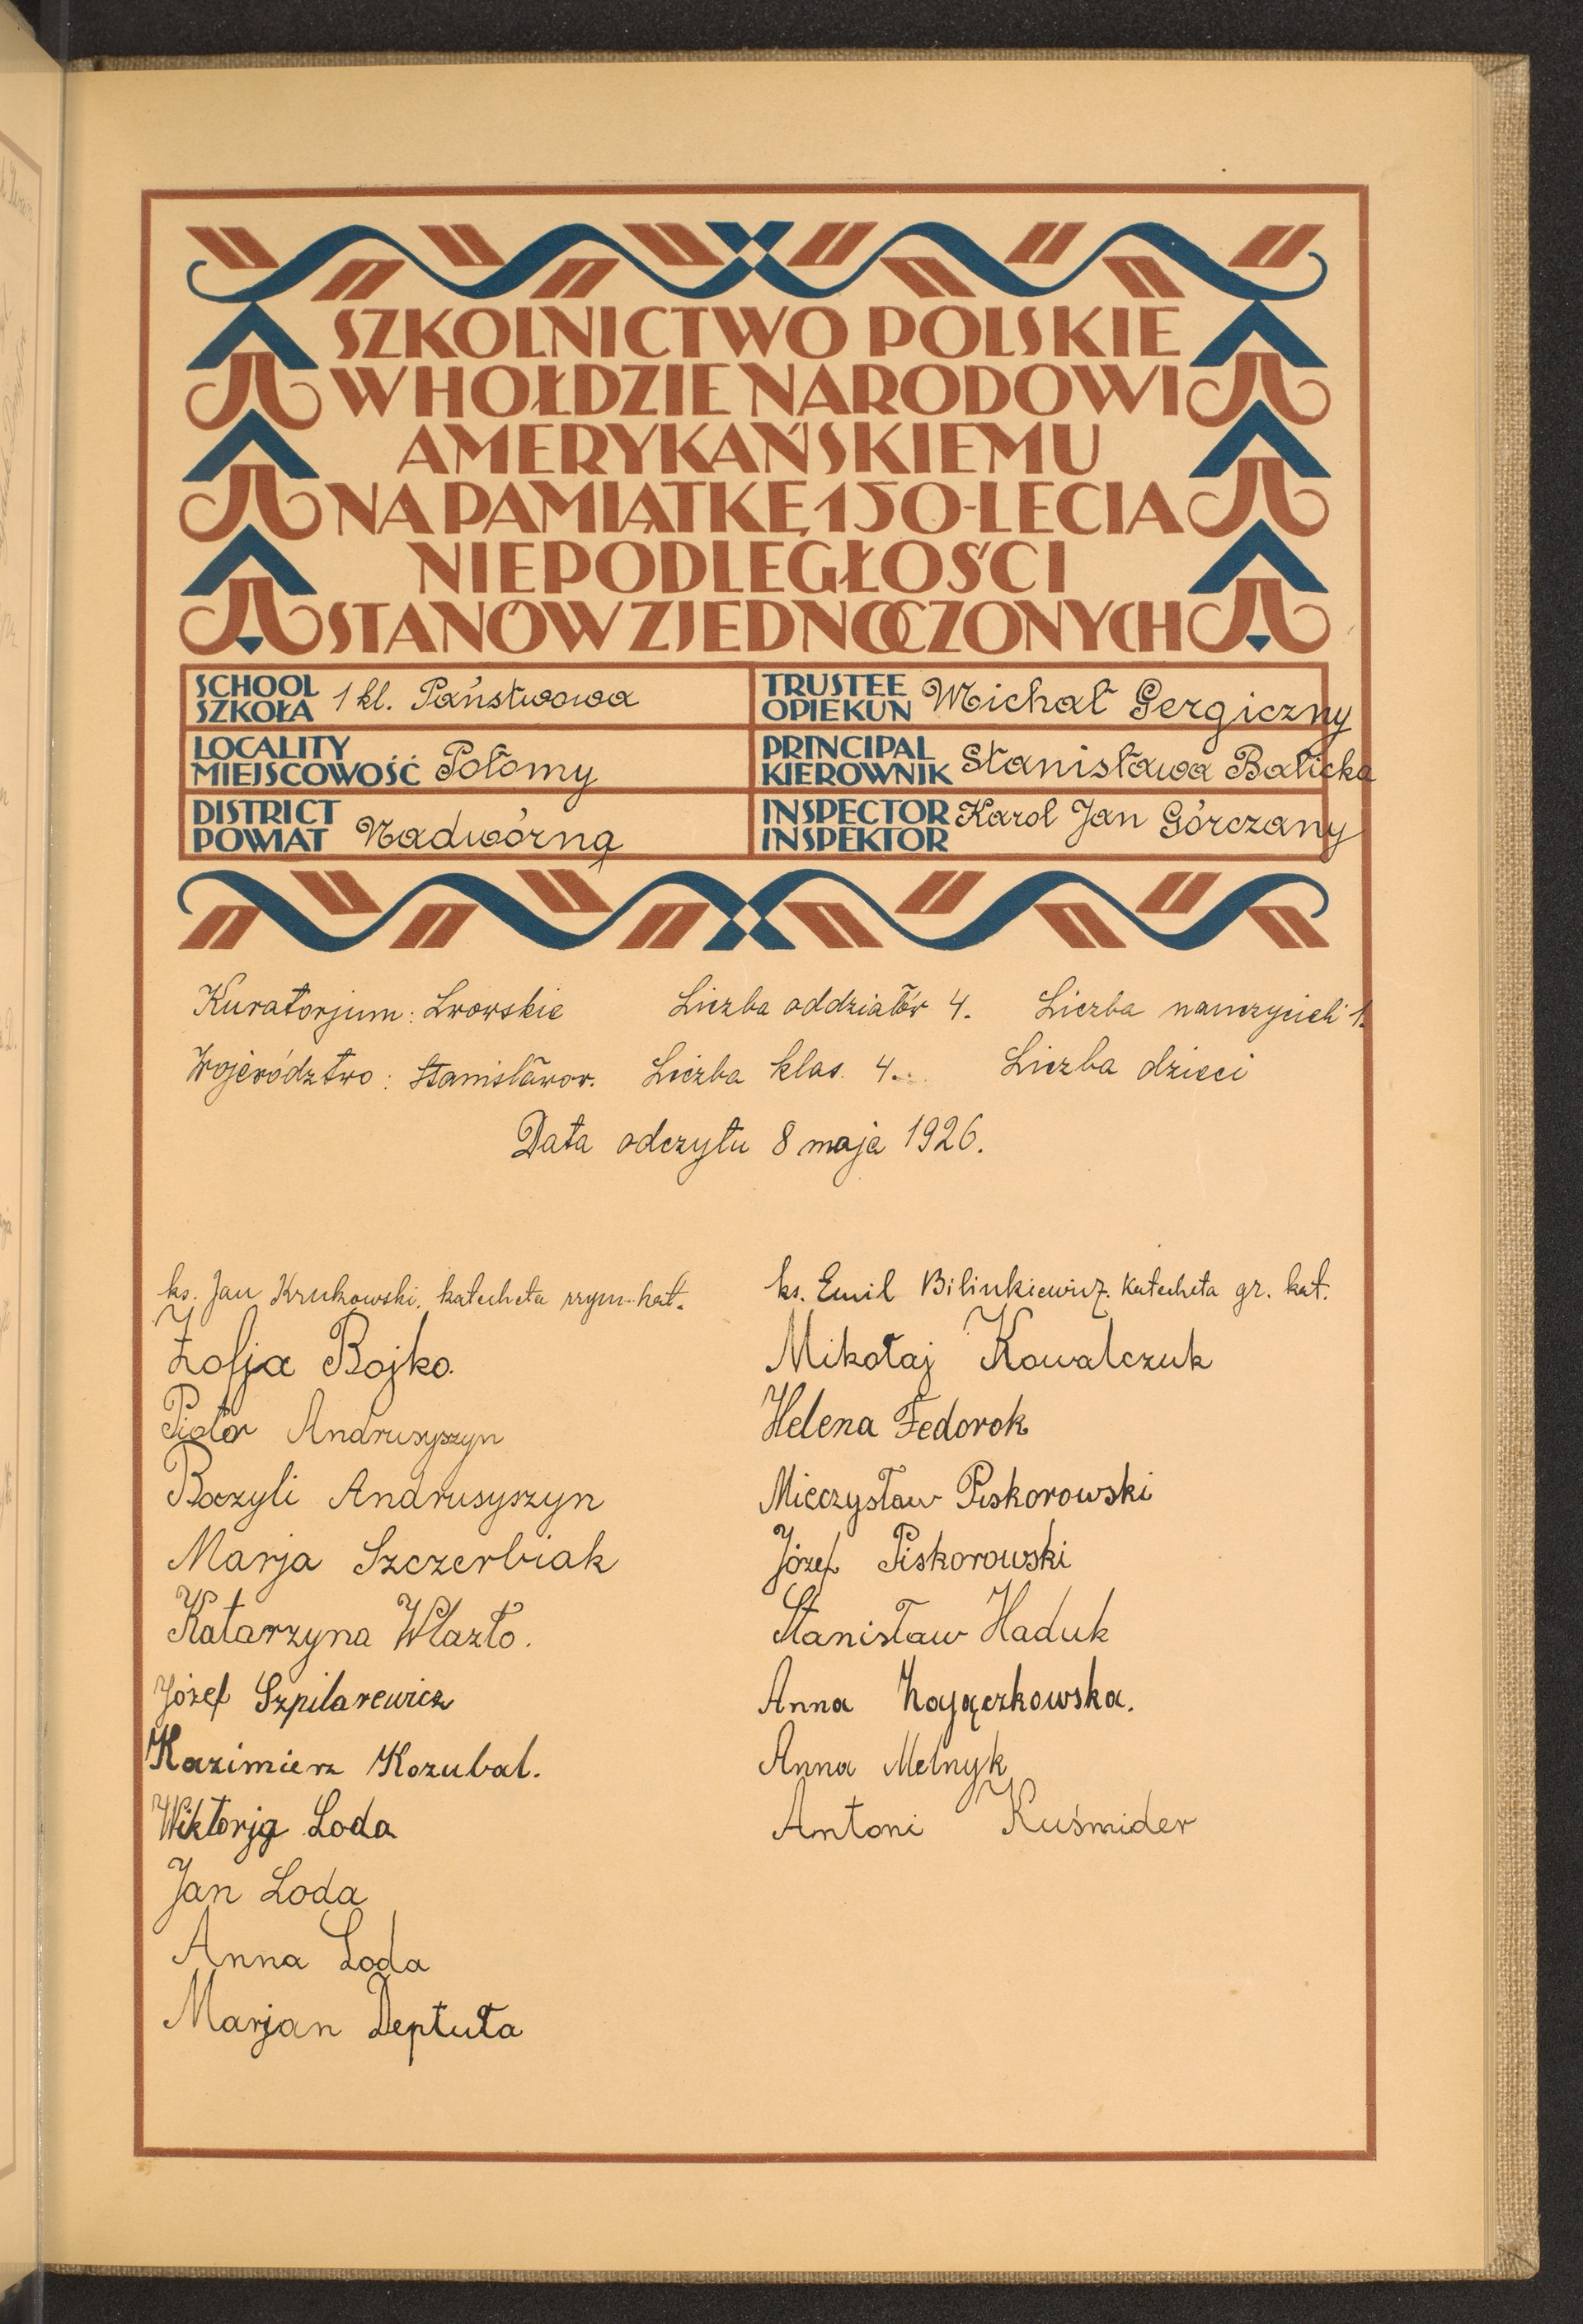 SZKOLNICTWO POLSKIE
W HOŁDZIE NARODOWI
AMERYKAŃSKIEMU
NA PAMIĄTKĘ 150-LECIA
NIEPODLEGŁOŚCI
STANÓW ZJEDNOCZONYCH
SCHOOL
SZKOŁA 1 kl. Państwowa
TRUSTEE
OPIEKUN Michał Gergiczny
LOCALITY
MIEJSCOWOŚĆ Połomy
PRINCIPAL
KIEROWNIK Stanisława Balicka
DISTRICT
POWIAT Nadwórną
INSPECTOR
INSPEKTOR Karol Jan Górczany
Kuratorjum: Lwowskie Liczba oddziałów 4. Liczba nauczycieli 1.
Województwo: Stanisławow. Liczba klas. 4. Liczba dzieci
Data odczytu 8 maja 1926.
ks. Jan Krukowski, katecheta rzym-kat.
Zofja Bojko.
Piotr Andrusyszyn
Bazyli Andrusyszyn
Marja Szczerbiak
Katarzyna Wlazło.
Józef Szpilarewicz
Kazimierz Kozubal.
Wiktorja Loda
Jan Loda
Anna Loda
Marjan Deptuła
ks. Emil Bilinkiewicz. Katecheta gr. kat.
Mikołaj Kowalczuk
Helena Fedorok
Mieczysław Piskorowski
Józef Piskorowski
Stanisław Haduk
Anna
Anna Melnyk
Antoni Kuśmider